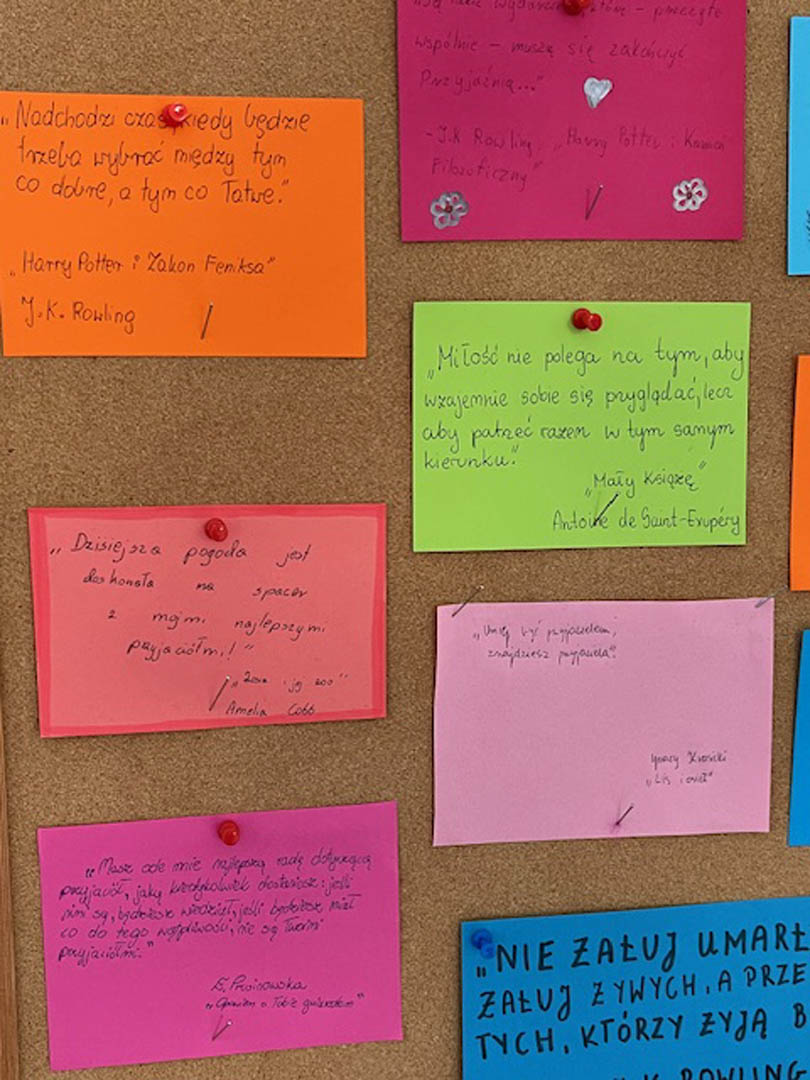 „Nadchodzi czas kiedy będzie
trzeba wybrać między tym
co dobre, a tym co łatwe."
„Harry Potter i Zakon Feniksa"
J.K. Rowling
wspólnie – muszą się zakończyć
przyjaźnią..."
- J.K Rowling, „Harry Potter i Kamień
Filozoficzny"
„Miłość nie polega na tym, aby
wzajemnie sobie się przyglądać, lecz
aby patrzeć razem w tym samym
kierunku."
„Mały Książę"
Antoine de Saint-Exupéry
„Dzisiejsza pogoda jest
doskonała na spacer
z moimi najlepszymi
przyjaciółmi!"
„Zosia i jej zoo"
Amelia Cobb
„Umiej być przyjacielem,
znajdziesz przyjaciela"
Ignacy Krasicki
„Lis i osioł"
„Masz ode mnie najlepszą radę dotyczącą
przyjaciół, jaką kiedykolwiek dostaniesz: jeśli
nimi są, będziesz wiedział, jeśli będziesz miał
co do tego wątpliwości, nie są Twoimi
przyjaciółmi."
„NIE ŻAŁUJ UMARŁ
ŻAŁUJ ŻYWYCH, A PRZE
TYCH, KTÓRZY ŻYJĄ B
K. ROWLING